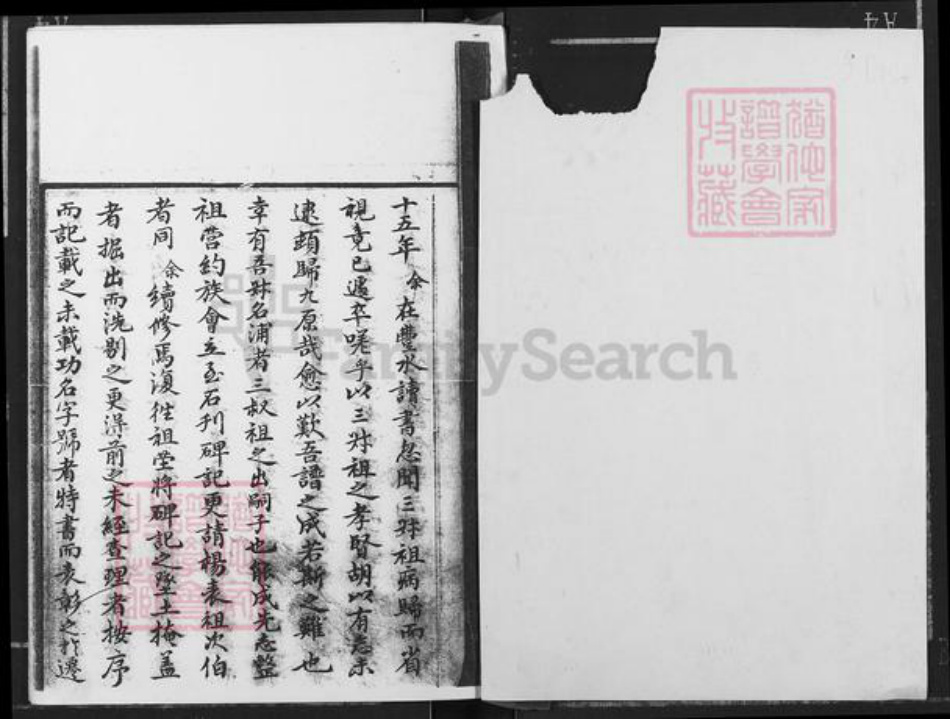 十五年余在豐水讀書忽聞三叔祖病歸而省
視竟已遽卒嗟乎以三叔祖之孝賢胡以有志未
逮頭歸九原哉愈以歎吾譜之成若斯之難也
幸有吾叔名浦者三叔祖之出嗣子也能成先志整
祖嘗約族會立至石刊碑記更請楊表祖次伯
者同余續修焉復往祖塋將碑記之墜土掩盖
者掘出而洗剔之更得前之未經查理者按序
而記載之未載功名字號者特書而表彰之於遷
譜學會
收藏
FamilySearch
A4